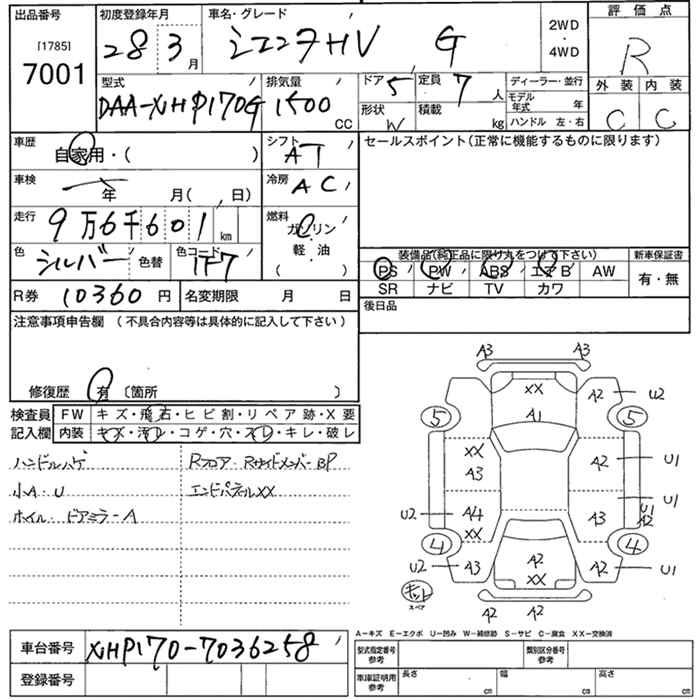 出品番号 初度登録年月 車名・グレード 2WD ・ 4WD 評価点
[1785] 7001 28 3 月 シエンタHV G R
型式 排気量 ドア 5 定員 7 人 ディーラー・並行 外装 内装
DAA-NHP170G 1500 CC 形状 W 積載 kg モデル年式 年 C C
ハンドル 左・右
車歴 自家用・( ) シフト AT セールスポイント(正常に機能するものに限ります)
車検 年 月( 、 日) 冷房 AC
走行 9万6千601 km 燃料 ガソリン
色 シルバー 色替 色コード 1F7 軽・油 ( )
装備品(純正品に限り丸をつけて下さい) 新車保証書
PS PW ABS エアB AW 有・無
SR ナビ TV カワ
R券 10360 円 名変期限 月 日 後日品
注意事項申告欄 (不具合内容等は具体的に記入して下さい)
修復歴 有 〔箇所 )
検査員 FW キズ・飛石・ヒビ割・リペア跡・X要
記入欄 内装 キズ・汚レ・コゲ・穴・スレ・キレ・破レ
ハンドルハゲ Rフロア・RサイドメンバーBP
小A・U エンドパネルXX
ホイル・ドアミラーA
A3 A3
XX A2 U2
5 A1 5
XX U1
A3 A2
U1
U2 A4 A3 U1
XX A2
4 A2 4
U2 A3 XX A2 U1
キット
スペア A2 A2
A-キズ E-エクボ U-凹み W-補修跡 S-サビ C-腐食 XX-交換済
車台番号 NHP170-7036258
登録番号
型式指定番号 参考 類別区分番号 参考
車庫証明用 参考 長さ cm 幅 cm 高さ cm